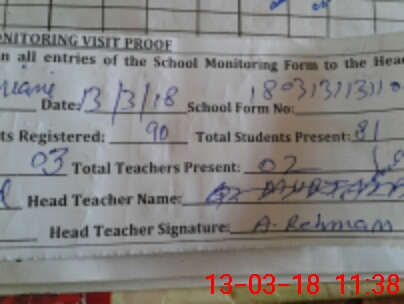 ONITORING VISIT PROOF
n all entries of the School Monitoring Form to the Hea
Date: 13/3/18 School Form No:
ts Registered: 90 Total Students Present: 81
03 Total Teachers Present: 02
Head Teacher Name:
Head Teacher Signature: A. Rehman
13-03-18 11:38